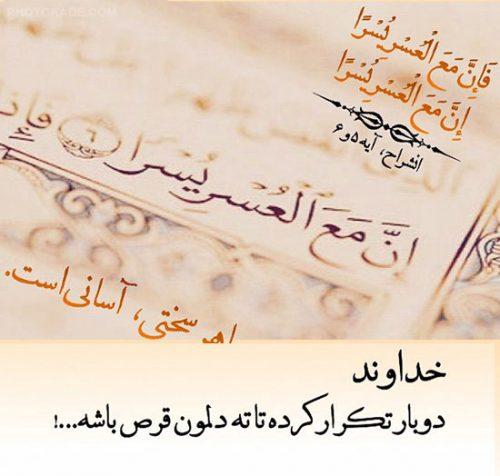 PHOTOKADE.COM
فَإِنَّ مَعَ الْعُسْرِ يُسْرًا
إِنَّ مَعَ الْعُسْرِ يُسْرًا
انشراح، آیه ۵و۶
اِنَّ مَعَ الْعُسْرِ يُسْرًا ٦ فَاِذ
هر سختی، آسانی است.
خداوند
دوبار تکرار کرده تا ته دلمون قرص باشه...!